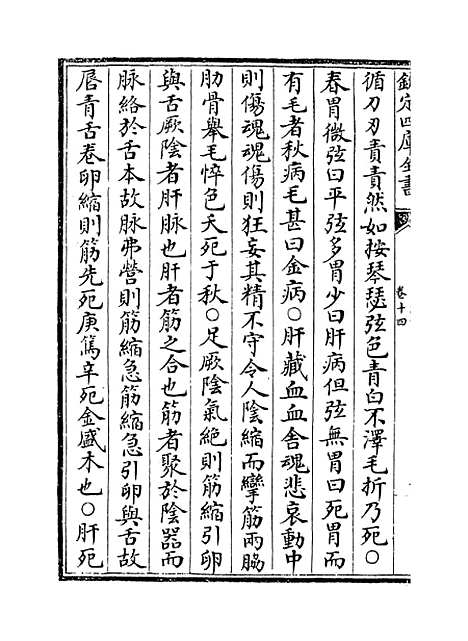 欽定四庫全書
卷十四
循刀刃責責然如按琴瑟弦色青白不澤毛折乃死○
春胃微弦曰平弦多胃少曰肝病但弦無胃曰死胃而
有毛者秋病毛甚曰金病○肝藏血血舍魂悲哀動中
則傷魂魂傷則狂妄其精不守令人陰縮而攣筋兩脇
肋骨舉毛悴色夭死于秋○足厥陰氣絶則筋縮引卵
與舌厥陰者肝脉也肝者筋之合也筋者聚於陰器而
脉絡於舌本故脉弗營則筋縮急筋縮急引卵與舌故
唇青舌卷卵縮則筋先死庚篤辛死金盛木也○肝死